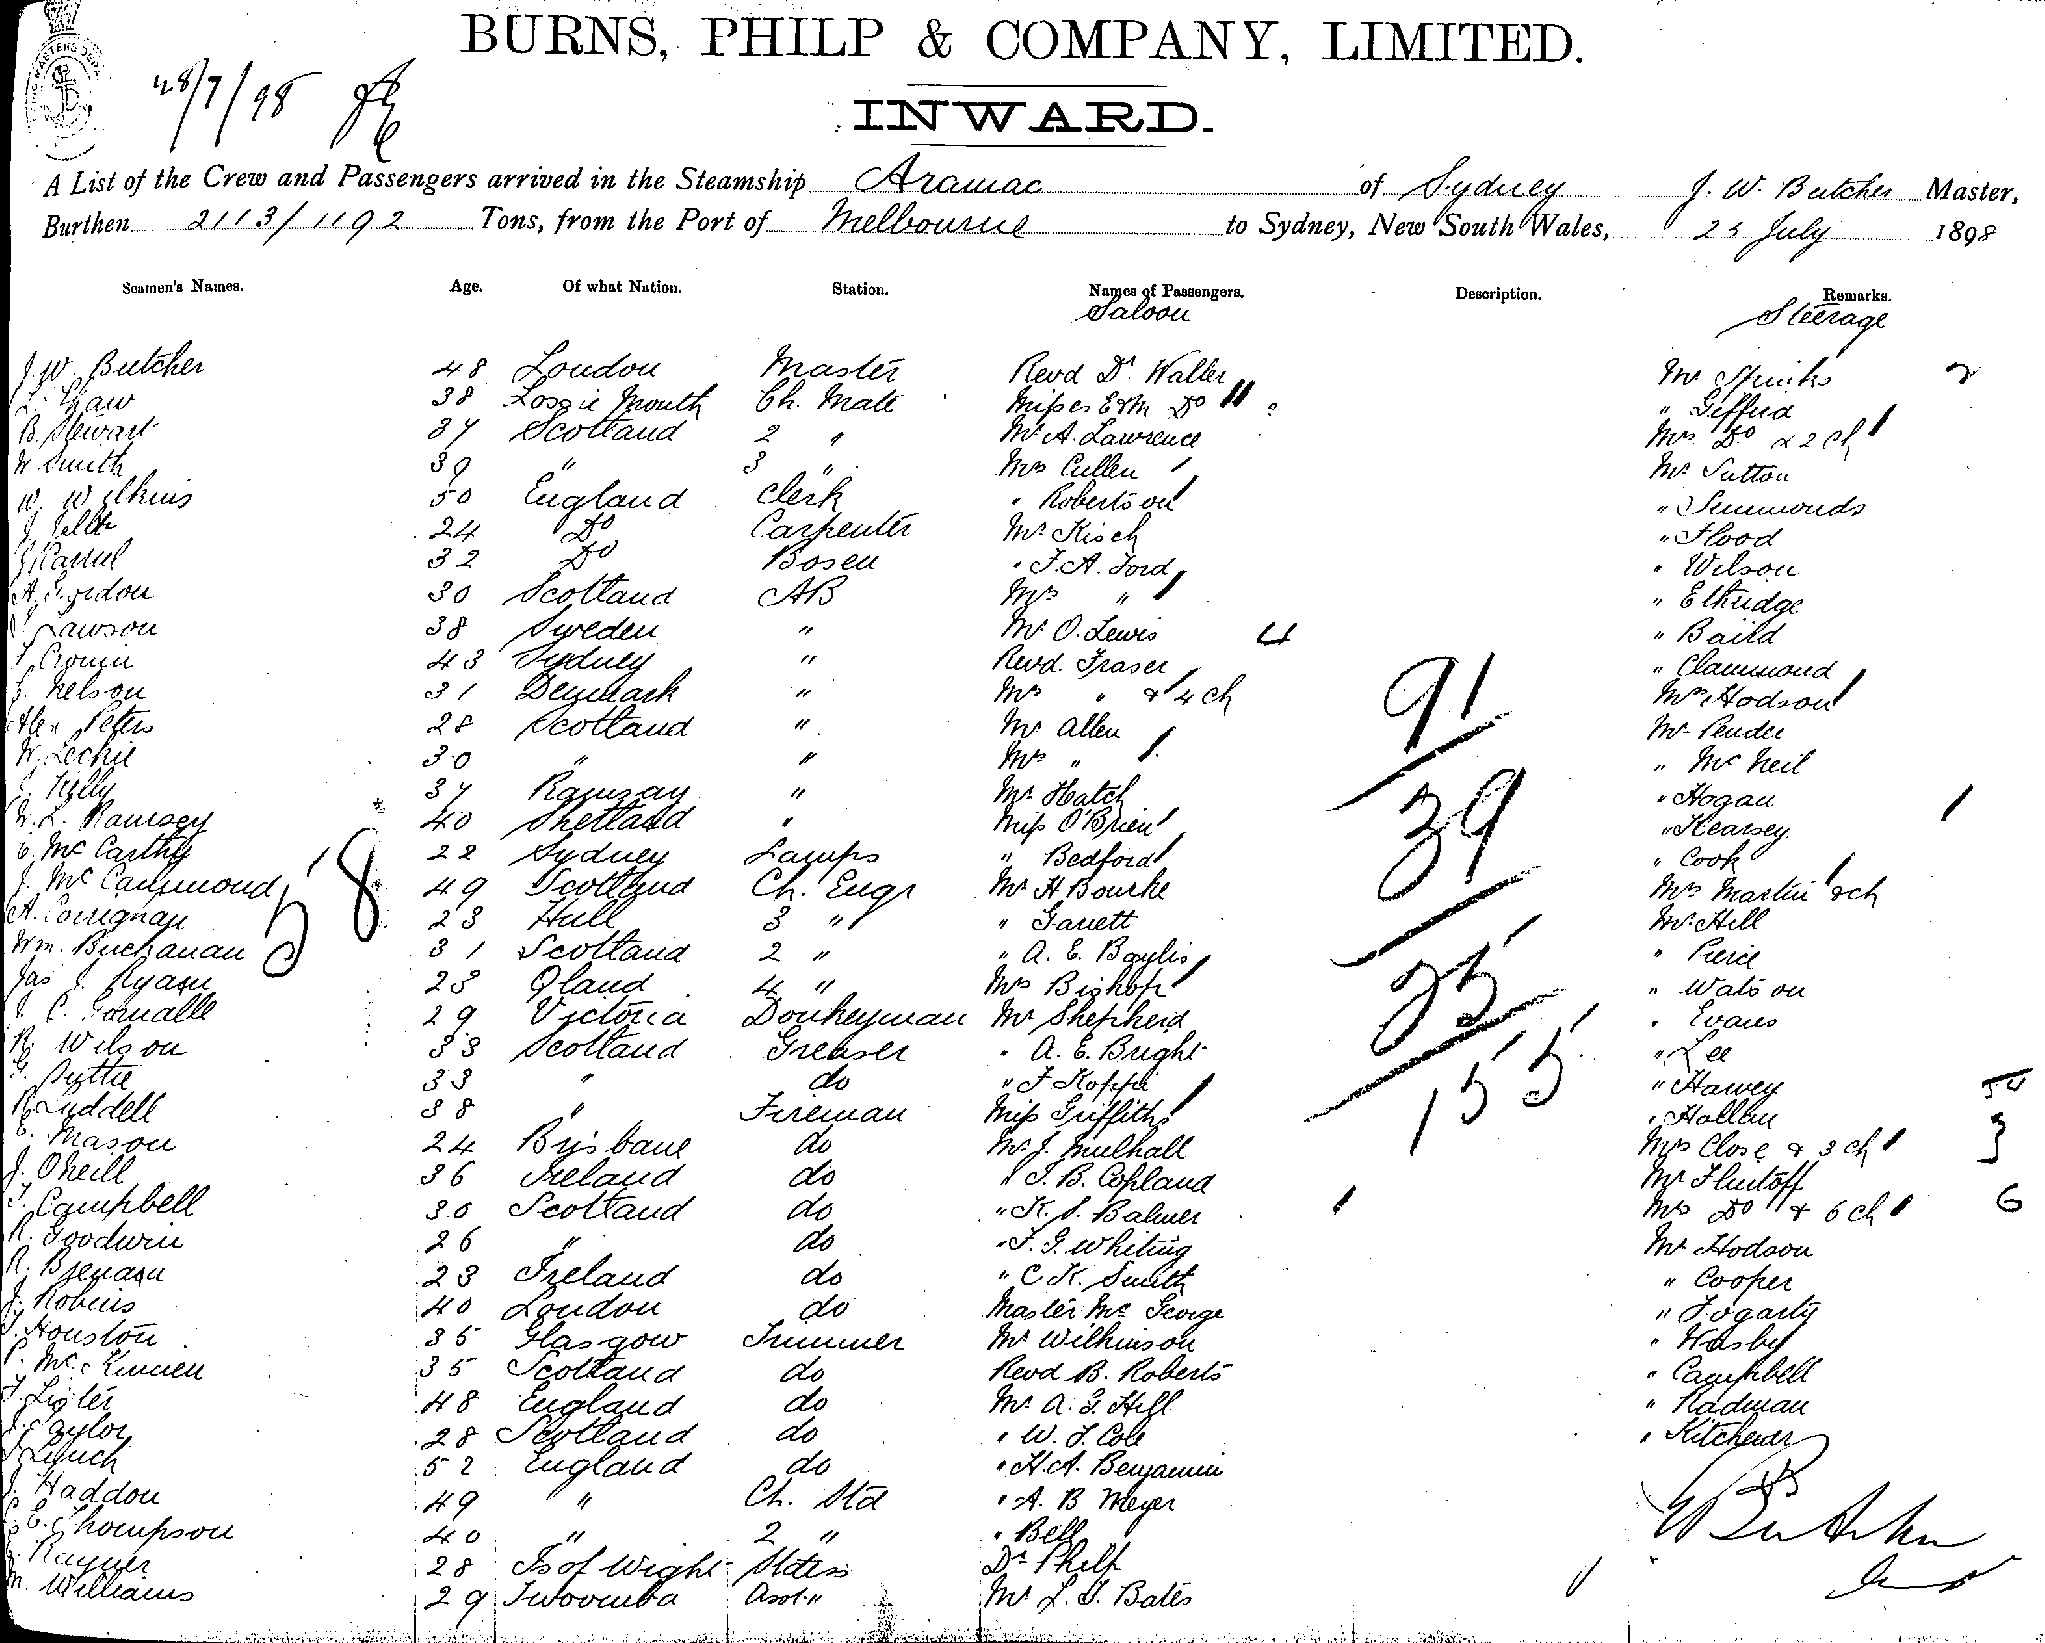 BURNS, PHILP & COMPANY, LIMITED.
28/7/98
INWARD.
A List of the Crew and Passengers arrived in the Steamship Aramac of Sydney J. W. Butcher Master,
Burthen 2113/1192 Tons, from the Port of Melbourne to Sydney, New South Wales, 25 July 1898
Seamen's Names. Age. Of what Nation. Station. Names of Passengers. Description. Remarks.
Saloon Steerage
J. W. Butcher 48 London Master Revd Dr. Waller Mr Spinks 2
Shaw 38 Lossie Mouth Ch. Mate Misses E & M Do " Gifford
B. Stewart 37 Scotland 2 " Mr A. Lawrence Mrs Do & 2 ch
W. Smith 39 " 3 " Mrs Cullen Mr Sutton
W. Wilkins 50 England Clerk " Robertson " Simmonds
J. 24 Do Carpenter Mr Kisch " Flood
32 Do Bosen " F. A. Ford " Wilson
A. Gordon 30 Scotland AB Mrs " " Ethridge
Lawson 38 Sweden " Mr O. Lewis 4 " Baild
Cronin 43 Sydney " Revd. Fraser " Clammond
Nelson 31 Denmark " Mrs " & 4 ch 91 Mrs Hodson
Alex Peters 28 Scotland " Mr Allen Mr Pender
W. Leckie 30 " " Mrs " " McNeil
Kelly 37 Ramsay " Mr Hatch 39 " Hogan 1
W. L. Ramsey 40 Shetland " Miss O'Brien " Kearsey
McCarthy 22 Sydney Lamps " Bedford " Cook
J. McCammond 58 49 Scotland Ch. Engr Mr H Bourke Mrs Martin & ch
A. Corrignan 23 Hull 3 " " Garrett Mr Hill
Wm. Buchanan 31 Scotland 2 " " A. E. Baylis 25 " Pierce
Jas J. Ryan 23 4 " Mrs Bishop " Watson
C. Gornalle 29 Victoria Donkeyman Mr Shepherd " Evans
R. Wilson 33 Scotland Greaser " A. E. Bright 155 " Lee
33 " do " F Koppe " Harvey 54
R. Liddell 38 " Fireman Miss Griffiths " Hollan
Mason 24 Brisbane do Mr J. Mulhall Mrs Close & 3 ch 3
J. ONeill 36 Ireland do " T. B. Copland Mr Flintoff
Campbell 30 Scotland do " K. S. Balmer 1 Mrs Do & 6 ch 6
R. Goodwin 26 " do " F. G. Whiting Mr Hodson
R. Brenan 23 Ireland do " C. K. Smith " Cooper
J. Robins 40 London do Master McGeorge " Fogarty
Houston 35 Glasgow Trimmer Mr Wilkinson " Hasby
P. McKinnen 35 Scotland do Revd B. Roberts " Campbell
Lister 48 England do Mr A. G. Hill " Radman
Taylor 28 Scotland do " W. J. Cole " Kitchener
Lynch 52 England do " H. A. Benjamin
J. Haddon 49 " Ch. Std " A. B Meyer
E. Thompson 40 " 2 " " Bell
Rayner 28 Is of Wight Stdess Dr Philp
Williams 29 Twoomba Asst " Mr L. G. Bates